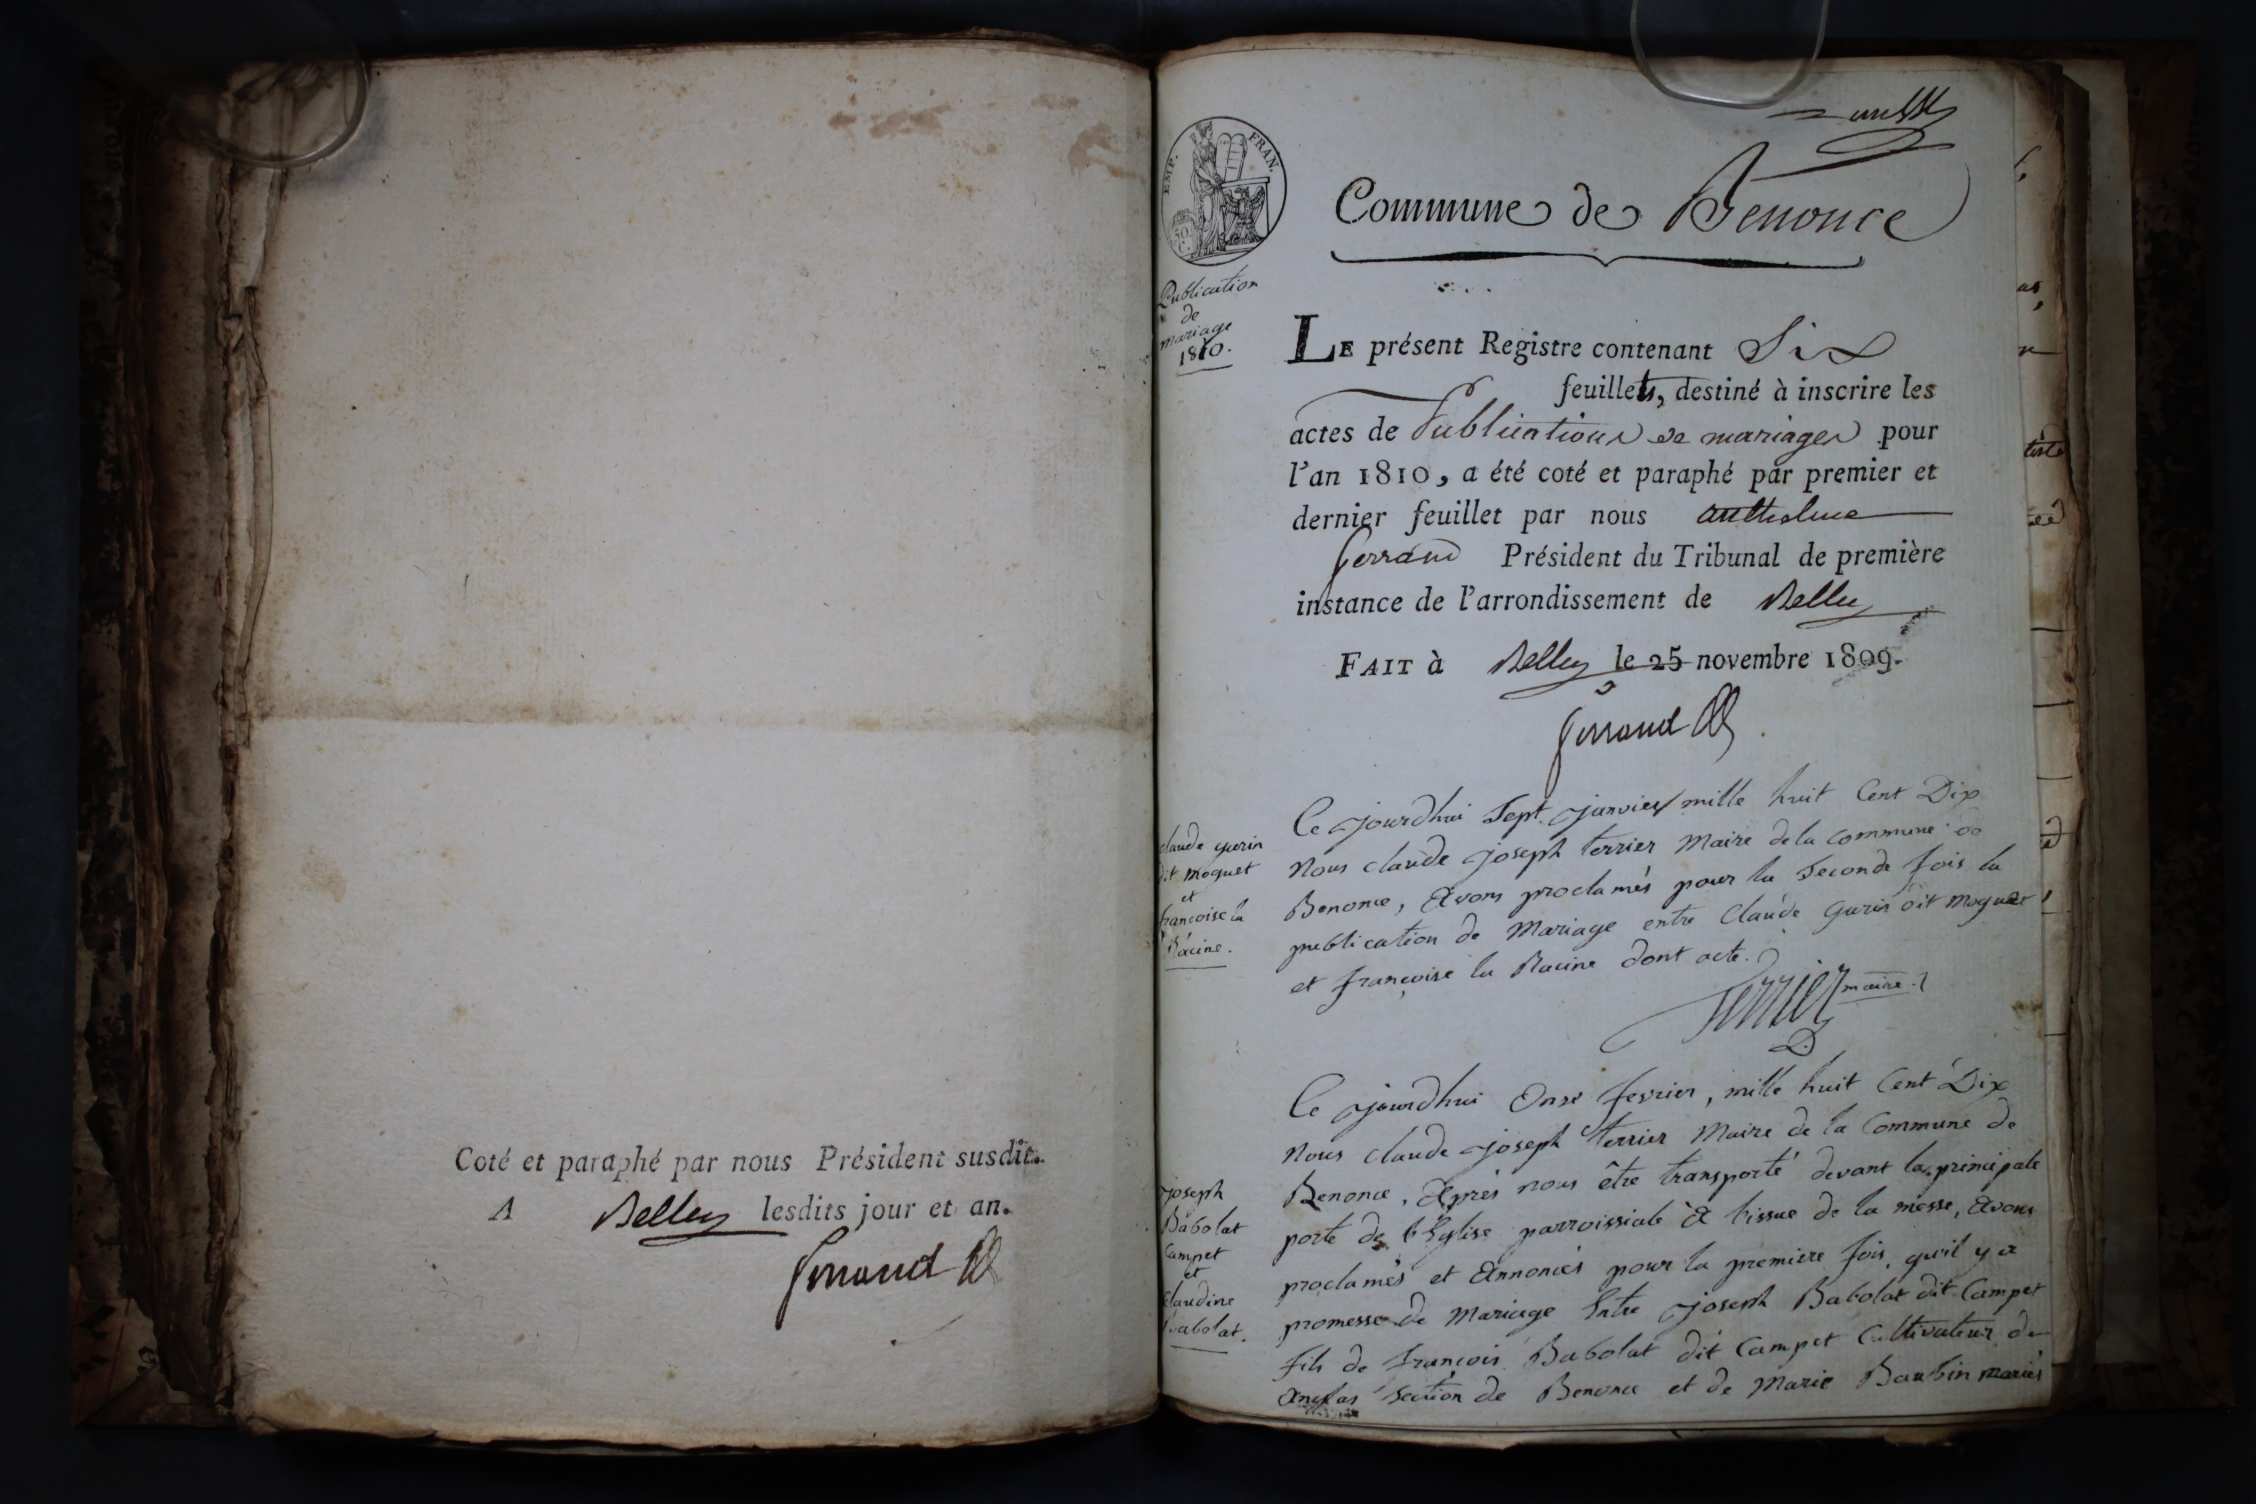 Coté et paraphé par nous Président susdit.
A Belley lesdits jour et an.
EMP. FRAN.
50
C.
Commune de Benonce
Publication
de
mariage
1810.
LE présent Registre contenant Six
feuillets, destiné à inscrire les
actes de Publications de mariages pour
l'an 1810, a été coté et paraphé par premier et
dernier feuillet par nous anthelme
ferrand Président du Tribunal de première
instance de l'arrondissement de Belley
FAIT à Belley le 25 novembre 1809.
ferrand
claude gurin
dit moguet
et
francoise la
Racine.
Ce jourdhui Sept janvier mille huit Cent Dix
Nous claude joseph terrier Maire de la commune de
Benonce, Avons proclamés pour la Seconde fois la
publication de Mariage entre Claude Gurin dit Moguet
et françoise la Racine dont acte.
Terrier maire
joseph
Babolat
Campet
et
Claudine
Babolat.
Ce jourdhui Onse fevrier, mille huit Cent Dix
Nous Claude joseph terrier Maire de la Commune de
Benonce, Après nous être transporté devant la principale
porte de l'Eglise parroissiale à l'issue de la messe, Avons
proclamés et Annoncés pour la premiere fois, qu'il y a
promesse de Mariage Entre joseph Babolat dit Campet
fils de françois Babolat dit Campet Cultivateur de
section de Benonce et de Marie Baubin mariés